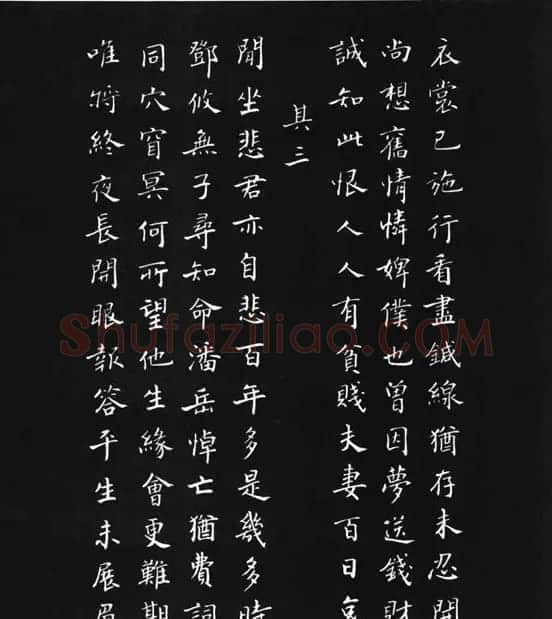 衣裳已施行看盡鍼線猶存未忍開
尚想舊情憐婢僕也曾因夢送錢財
誠知此恨人人有貧賤夫妻百日哀
其三
閒坐悲君亦自悲百年多是幾多時
鄧攸無子尋知命潘岳悼亡猶費詞
同穴窅冥何所望他生緣會更難期
唯將終夜長開眼報答平生未展眉
Shufaziliao.COM